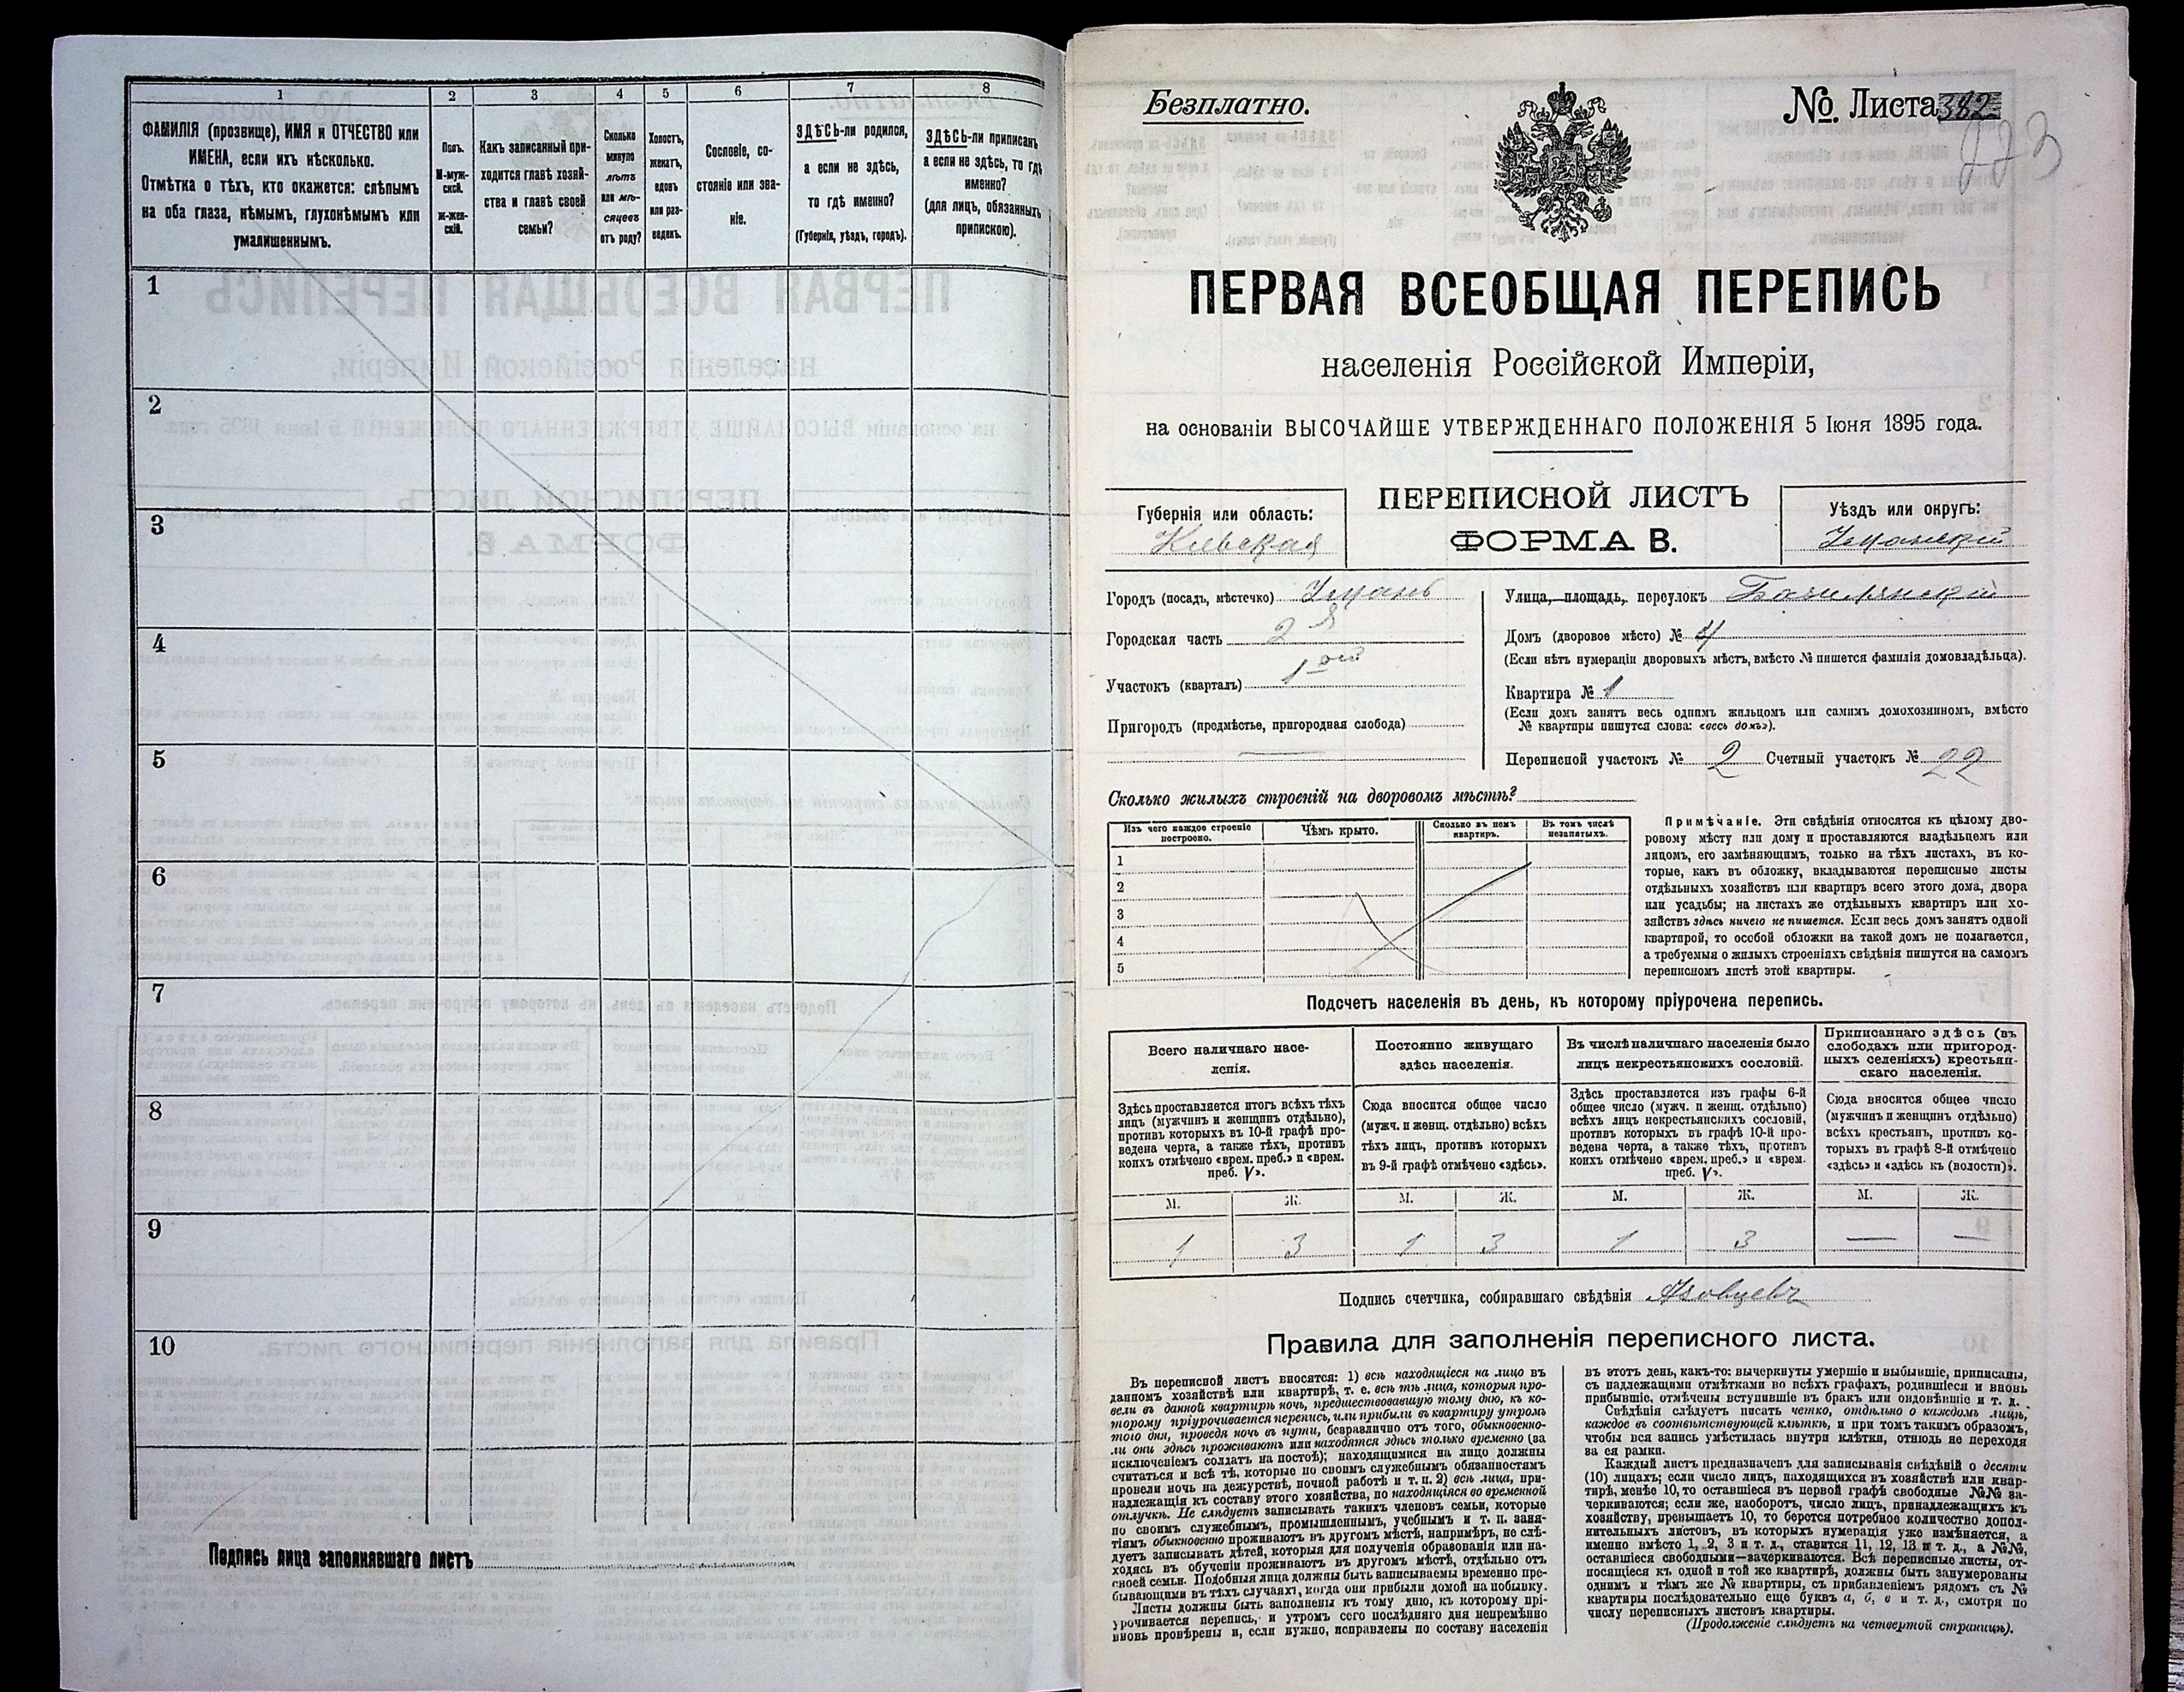 1
2
3
4
5
6
7
8
ФАМИЛІЯ (прозвище), ИМЯ и ОТЧЕСТВО или
ИМЕНА, если ихъ нѣсколько.
Отмѣтка о тѣхъ, кто окажется: слѣпымъ
на оба глаза, нѣмымъ, глухонѣмымъ или
умалишеннымъ.
Полъ.
М-муж-
ской.
Ж-жен-
скій.
Какъ записанный при-
ходится главѣ хозяй-
ства и главѣ своей
семьи?
Сколько
минуло
лѣтъ
или мѣ-
сяцевъ
отъ роду?
Холостъ,
женатъ,
вдовъ
или раз-
веденъ.
Сословіе, со-
стояніе или зва-
ніе.
ЗДѢСЬ-ли родился,
а если не здѣсь,
то гдѣ именно?
(Губернія, уѣздъ, городъ).
ЗДѢСЬ-ли приписанъ
а если не здѣсь, то гдѣ
именно?
(для лицъ, обязанныхъ
припискою).
1
2
3
4
5
6
7
8
9
10
Подпись лица заполнявшаго листъ
Безплатно.
№. Листа 382
223
ПЕРВАЯ ВСЕОБЩАЯ ПЕРЕПИСЬ
населенія Россійской Имперіи,
на основаніи ВЫСОЧАЙШЕ УТВЕРЖДЕННАГО ПОЛОЖЕНІЯ 5 Іюня 1895 года.
Губернія или область:
Кіевская
ПЕРЕПИСНОЙ ЛИСТЪ
ФОРМА В.
Уѣздъ или округъ:
Уманскій
Городъ (посадъ, мѣстечко) Умань
Городская часть 2
Участокъ (кварталъ) 1ый
Пригородъ (предмѣстье, пригородная слобода)
Улица, площадь, переулокъ
Домъ (дворовое мѣсто) № 4
(Если нѣтъ нумераціи дворовыхъ мѣстъ, вмѣсто № пишется фамилія домовладѣльца).
Квартира № 1
(Если домъ занятъ весь однимъ жильцомъ или самимъ домохозяиномъ, вмѣсто
№ квартиры пишутся слова: «весь домъ»).
Переписной участокъ № 2 Счетный участокъ № 22
Сколько жилыхъ строеній на дворовомъ мѣстѣ?
Изъ чего каждое строеніе
построено.
Чѣмъ крыто.
Сколько въ немъ
квартиръ.
Въ томъ числѣ
незанятыхъ.
1
2
3
4
5
Примѣчаніе. Эти свѣдѣнія относятся къ цѣлому дво-
ровому мѣсту или дому и проставляются владѣльцемъ или
лицомъ, его замѣняющимъ, только на тѣхъ листахъ, въ ко-
торые, какъ въ обложку, вкладываются переписные листы
отдѣльныхъ хозяйствъ или квартиръ всего этого дома, двора
или усадьбы; на листахъ же отдѣльныхъ квартиръ или хо-
зяйствъ здѣсь ничего не пишется. Если весь домъ занятъ одной
квартирой, то особой обложки на такой домъ не полагается,
а требуемыя о жилыхъ строеніяхъ свѣдѣнія пишутся на самомъ
переписномъ листѣ этой квартиры.
Подсчетъ населенія въ день, къ которому пріурочена перепись.
Всего наличнаго насе-
ленія.
Постоянно живущаго
здѣсь населенія.
Въ числѣ наличнаго населенія было
лицъ некрестьянскихъ сословій.
Приписаннаго здѣсь (въ
слободахъ или пригород-
ныхъ селеніяхъ) крестьян-
скаго населенія.
Здѣсь проставляется итогъ всѣхъ тѣхъ
лицъ (мужчинъ и женщинъ отдѣльно),
противъ которыхъ въ 10-й графѣ про-
ведена черта, а также тѣхъ, противъ
коихъ отмѣчено «врем. преб.» и «врем.
преб. V».
Сюда вносится общее число
(мужч. и женщ. отдѣльно) всѣхъ
тѣхъ лицъ, противъ которыхъ
въ 9-й графѣ отмѣчено «здѣсь».
Здѣсь проставляется изъ графы 6-й
общее число (мужч. и женщ. отдѣльно)
всѣхъ лицъ некрестьянскихъ сословій,
противъ которыхъ въ графѣ 10-й про-
ведена черта, а также тѣхъ, противъ
коихъ отмѣчено «врем. преб.» и «врем.
преб. V».
Сюда вносится общее число
(мужчинъ и женщинъ отдѣльно)
всѣхъ крестьянъ, противъ ко-
торыхъ въ графѣ 8-й отмѣчено
«здѣсь» и «здѣсь къ (волости)».
М. Ж. М. Ж. М. Ж. М. Ж.
1 3 1 3 1 3 — —
Подпись счетчика, собиравшаго свѣдѣнія
Правила для заполненія переписного листа.
Въ переписной листъ вносятся: 1) всѣ находящіеся на лицо въ
данномъ хозяйствѣ или квартирѣ, т. е. всѣ тѣ лица, которыя про-
вели въ данной квартирѣ ночь, предшествовавшую тому дню, къ ко-
торому пріурочивается перепись, или прибыли въ квартиру утромъ
того дня, проведя ночь въ пути, безразлично отъ того, обыкновенно-
ли они здѣсь проживаютъ или находятся здѣсь только временно (за
исключеніемъ солдатъ на постоѣ); находящимися на лицо должны
считаться и всѣ тѣ, которые по своимъ служебнымъ обязанностямъ
провели ночь на дежурствѣ, ночной работѣ и т. п. 2) всѣ лица, при-
надлежащія къ составу этого хозяйства, но находящіяся во временной
отлучкѣ. Не слѣдуетъ записывать такихъ членовъ семьи, которые
по своимъ служебнымъ, промышленнымъ, учебнымъ и т. п. заня-
тіямъ обыкновенно проживаютъ въ другомъ мѣстѣ, напримѣръ, не слѣ-
дуетъ записывать дѣтей, которыя для полученія образованія или на-
ходясь въ обученіи проживаютъ въ другомъ мѣстѣ, отдѣльно отъ
своей семьи. Подобныя лица должны быть записываемы временно пре-
бывающими въ тѣхъ случаяхъ, когда они прибыли домой на побывку.
Листы должны быть заполнены къ тому дню, къ которому прі-
урочивается перепись, и утромъ сего послѣдняго дня непремѣнно
вновь провѣрены и, если нужно, исправлены по составу населенія
въ этотъ день, какъ-то: вычеркнуты умершіе и выбывшіе, приписаны,
съ надлежащими отмѣтками во всѣхъ графахъ, родившіеся и вновь
прибывшіе, отмѣчены вступившіе въ бракъ или овдовѣвшіе и т. д.
Свѣдѣнія слѣдуетъ писать четко, отдѣльно о каждомъ лицѣ,
каждое въ соотвѣтствующей клѣткѣ, и при томъ такимъ образомъ,
чтобы вся запись умѣстилась внутри клѣтки, отнюдь не переходя
за ея рамки.
Каждый листъ предназначенъ для записыванія свѣдѣній о десяти
(10) лицахъ; если число лицъ, находящихся въ хозяйствѣ или квар-
тирѣ, менѣе 10, то оставшіеся въ первой графѣ свободные №№ за-
черкиваются; если же, наоборотъ, число лицъ, принадлежащихъ къ
хозяйству, превышаетъ 10, то берется потребное количество допол-
нительныхъ листовъ, въ которыхъ нумерація уже измѣняется, а
именно вмѣсто 1, 2, 3 и т. д., ставится 11, 12, 13 и т. д., а №№,
оставшіеся свободными—зачеркиваются. Всѣ переписные листы, от-
носящіеся къ одной и той же квартирѣ, должны быть занумерованы
однимъ и тѣмъ же № квартиры, съ прибавленіемъ рядомъ съ №
квартиры послѣдовательно еще буквъ а, б, в и т. д., смотря по
числу переписныхъ листовъ квартиры.
(Продолженіе слѣдуетъ на четвертой страницѣ).